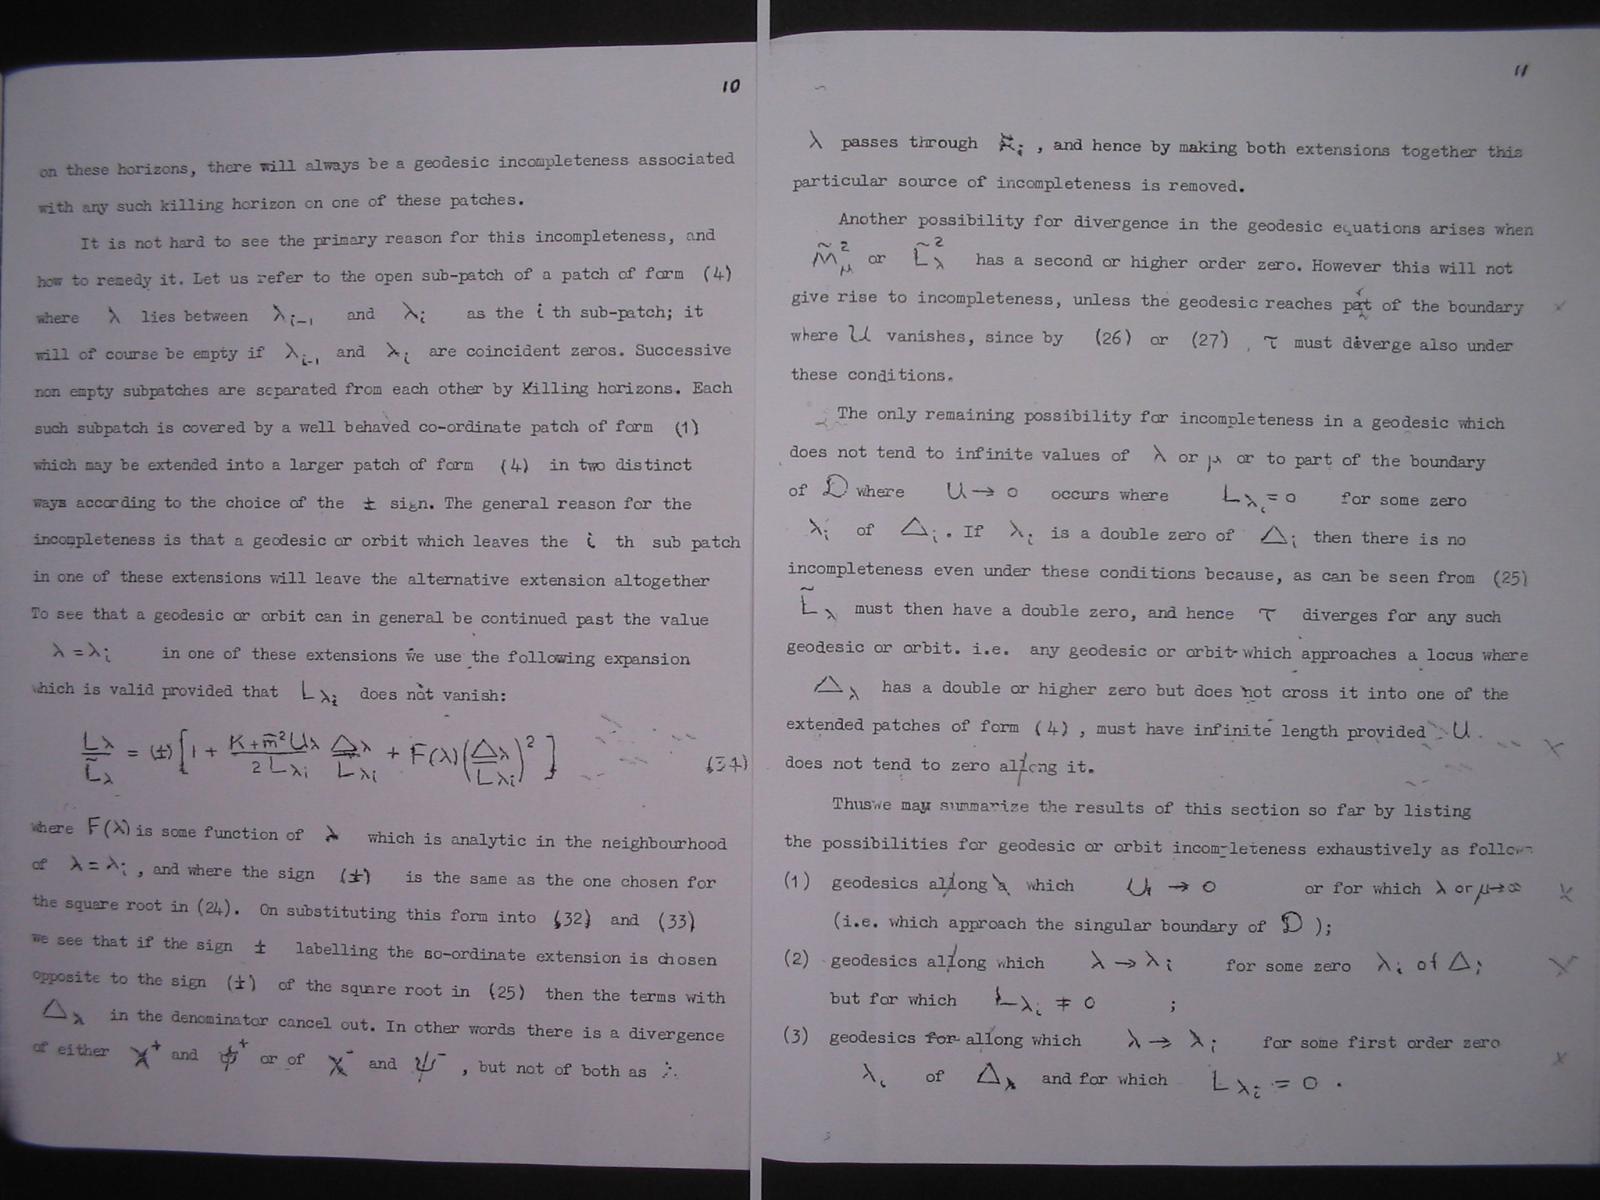 10
on these horizons, there will always be a geodesic incompleteness associated
with any such killing horizon on one of these patches.
It is not hard to see the primary reason for this incompleteness, and
how to remedy it. Let us refer to the open sub-patch of a patch of form (4)
where λ lies between λ_{i-1} and λ_i as the i th sub-patch; it
will of course be empty if λ_{i-1} and λ_i are coincident zeros. Successive
non empty subpatches are separated from each other by Killing horizons. Each
such subpatch is covered by a well behaved co-ordinate patch of form (1)
which may be extended into a larger patch of form (4) in two distinct
ways according to the choice of the ± sign. The general reason for the
incompleteness is that a geodesic or orbit which leaves the i th sub patch
in one of these extensions will leave the alternative extension altogether
To see that a geodesic or orbit can in general be continued past the value
λ = λ_i in one of these extensions we use the following expansion
which is valid provided that L_{λ_i} does not vanish:
L_λ / L̃_λ = (±) [ 1 + (K + m̃² U_λ) / (2 L_{λi}) Δ_λ / L_{λi} + F(λ) (Δ_λ / L_{λi})² ] (34)
where F(λ) is some function of λ which is analytic in the neighbourhood
of λ = λ_i , and where the sign (±) is the same as the one chosen for
the square root in (24). On substituting this form into (32) and (33)
we see that if the sign ± labelling the so-ordinate extension is chosen
opposite to the sign (±) of the square root in (25) then the terms with
Δ_λ in the denominator cancel out. In other words there is a divergence
of either χ⁺ and ψ⁺ or of χ⁻ and ψ⁻ , but not of both as
11
λ passes through λ_i , and hence by making both extensions together this
particular source of incompleteness is removed.
Another possibility for divergence in the geodesic equations arises when
M̃_μ² or L̃_λ² has a second or higher order zero. However this will not
give rise to incompleteness, unless the geodesic reaches part of the boundary
where U vanishes, since by (26) or (27) , τ must diverge also under
these conditions.
The only remaining possibility for incompleteness in a geodesic which
does not tend to infinite values of λ or μ or to part of the boundary
of D where U → 0 occurs where L_{λ_i} = 0 for some zero
λ_i of Δ_i . If λ_i is a double zero of Δ_i then there is no
incompleteness even under these conditions because, as can be seen from (25)
L̃_λ must then have a double zero, and hence τ diverges for any such
geodesic or orbit. i.e. any geodesic or orbit which approaches a locus where
Δ_λ has a double or higher zero but does not cross it into one of the
extended patches of form (4) , must have infinite length provided U
does not tend to zero al/ong it.
Thuswe may summarize the results of this section so far by listing
the possibilities for geodesic or orbit incom-leteness exhaustively as follows
(1) geodesics al/ong which U → 0 or for which λ or μ → ∞
(i.e. which approach the singular boundary of D );
(2) geodesics al/ong which λ → λ_i for some zero λ_i of Δ_i
but for which L_{λ_i} ≠ 0 ;
(3) geodesics for al/ong which λ → λ_i for some first order zero
λ_i of Δ_λ and for which L_{λ_i} = 0 .